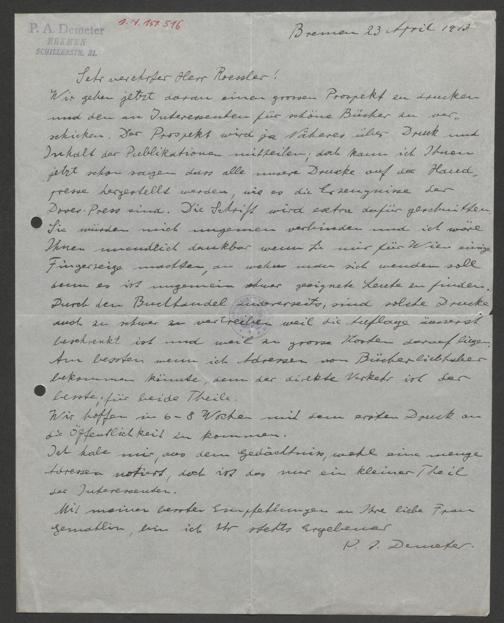 P. A. Demeter
BREMEN
SCHILLERSTR. 31.
Bremen 23 April 1913
Sehr verehrter Herr Roessler!
Wir gehen jetzt daran einen grossen Prospekt zu drucken
und den an Interessenten für schöne Bücher zu ver-
schicken. Der Prospekt wird ja Näheres über Druck und
Inhalt der Publikationen mitteilen; doch kann ich Ihnen
jetzt schon sagen dass alle unsere Drucke auf der Hand-
presse hergestellt werden, wie es die Erzeugnisse der
Doves-Press sind. Die Schrift wird extra dafür geschnitten
Sie würden mich ungemein verbinden und ich wäre
Ihnen unendlich dankbar wenn Sie mir für Wien einige
Fingerzeige machten, an wehn man sich wenden soll
denn es ist ungemein schwer geeignete Leute zu finden.
Durch den Buchhandel andererseits, sind solche Drucke
auch zu schwer zu vertreiben weil die Auflage äusserst
beschrenkt ist und weil zu grosse Kosten darauf liegen.
Am bessten wenn ich Adressen von Bücherliebhaber
bekommen könnte, denn der direkte Verkehr ist der
besste, für beide Theile.
Wir hoffen in 6-8 Wochen mit dem ersten Druck an
die Öffentlichkeit zu kommen.
Ich habe mir, aus dem Gedächtniss, wohl eine menge
Adressen notiert, doch ist das nur ein kleiner Theil
der Interessenten.
Mit meinen bessten Empfehlungen an Ihre liebe Frau
Gemahlin, bin ich Ihr stehts Ergebener
P. A. Demeter.